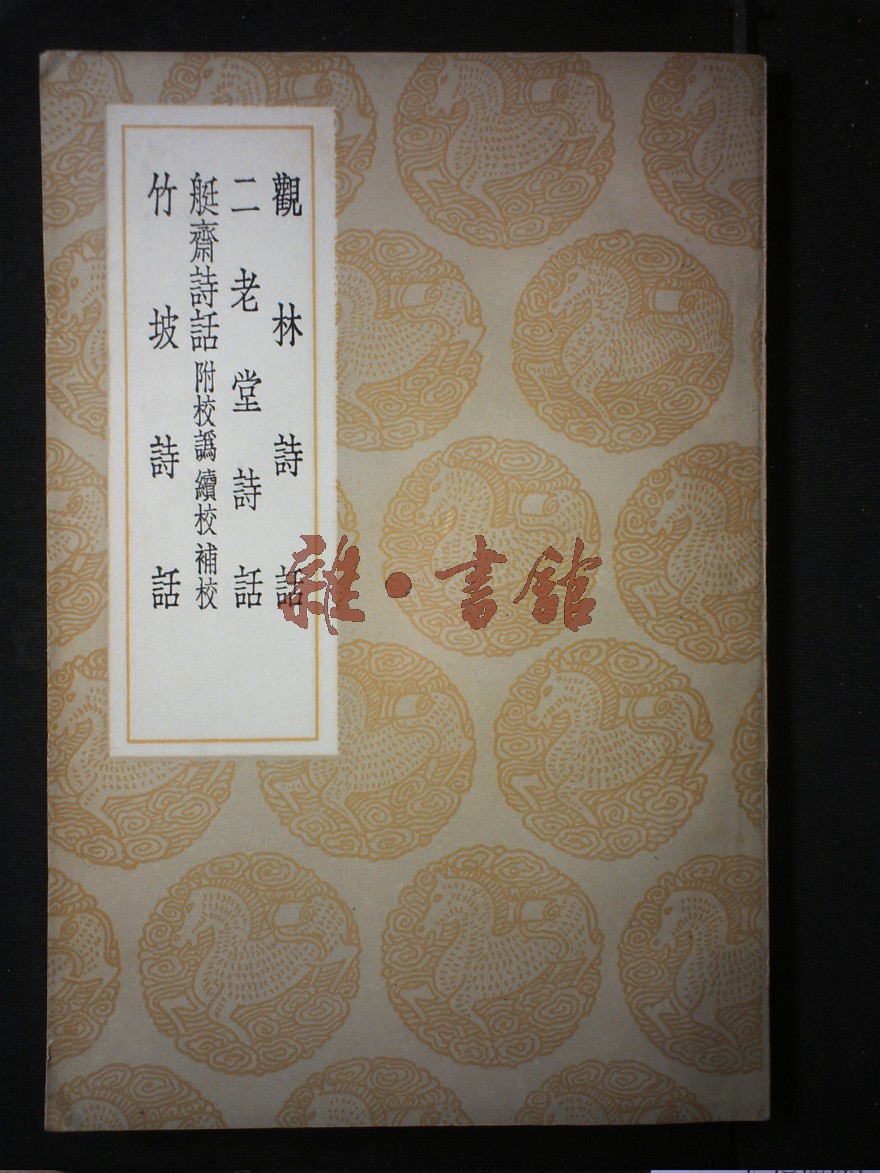 觀林詩話
二老堂詩話
艇齋詩話附校譌續校補校
竹坡詩話
雜·書館